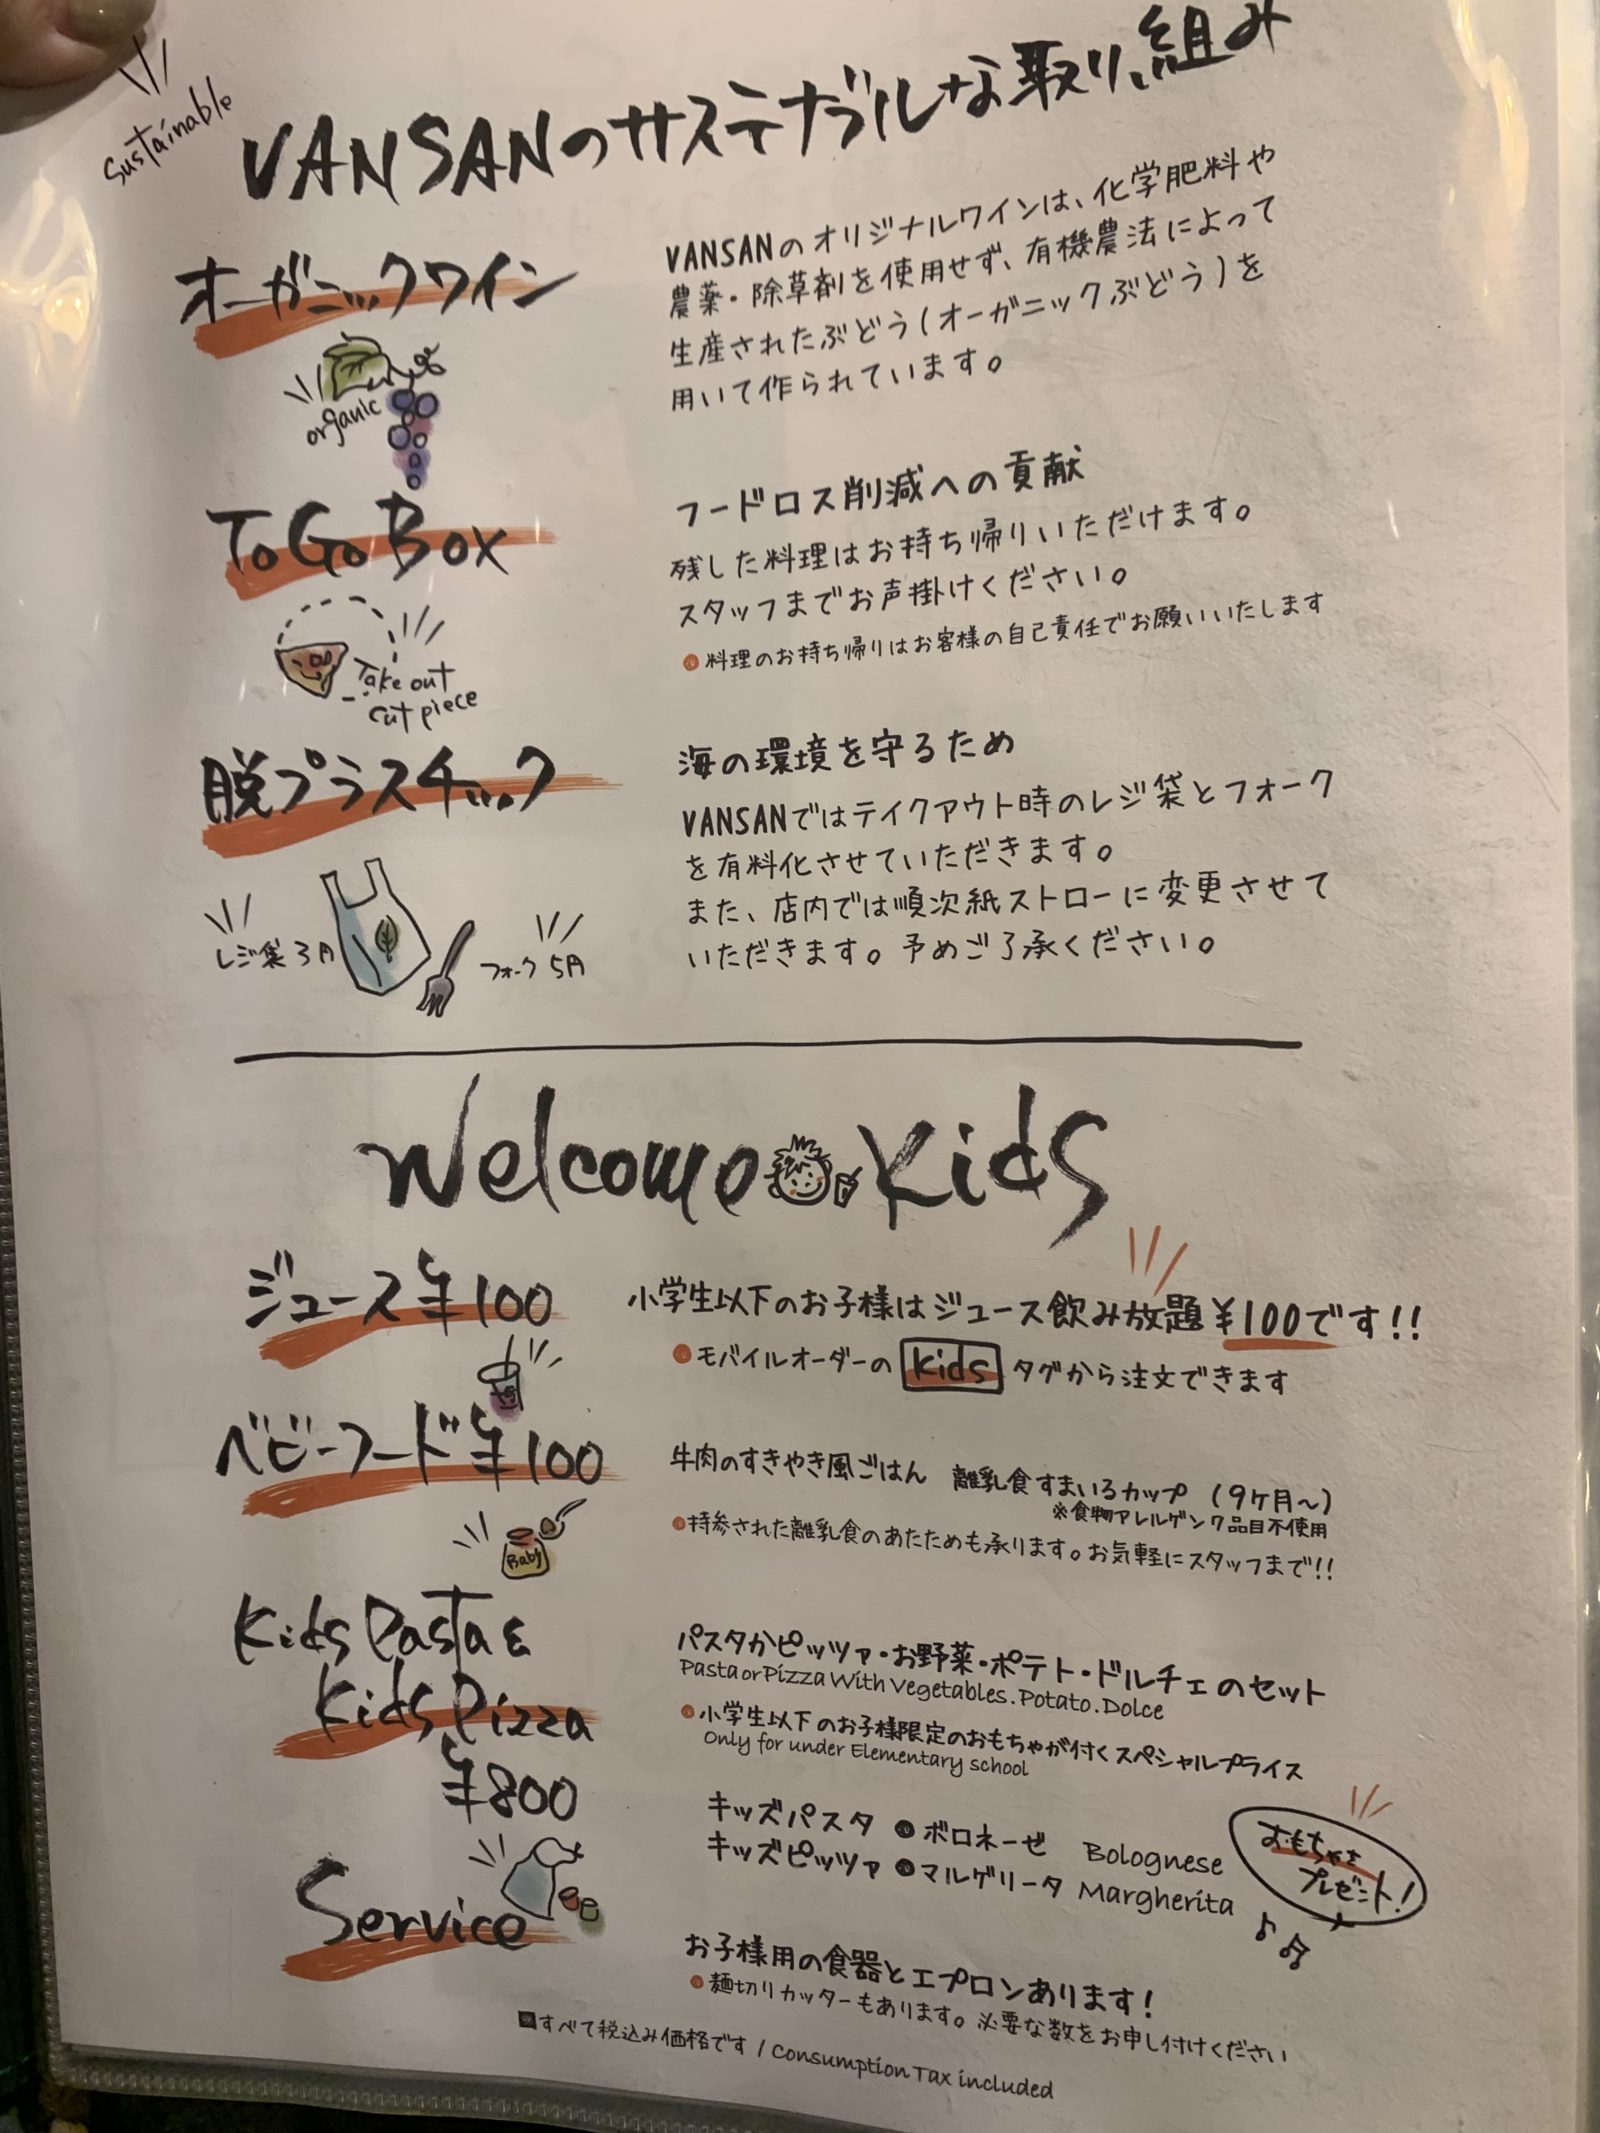 Sustainable
VANSANのサステナブルな取り組み
オーガニックワイン
organic
VANSANのオリジナルワインは、化学肥料や
農薬・除草剤を使用せず、有機農法によって
生産されたぶどう(オーガニックぶどう)を
用いて作られています。
To Go Box
Take out
cut piece
フードロス削減への貢献
残した料理はお持ち帰りいただけます。
スタッフまでお声掛けください。
料理のお持ち帰りはお客様の自己責任でお願いいたします
脱プラスチック
レジ袋3円
フォーク5円
海の環境を守るため
VANSANではテイクアウト時のレジ袋とフォーク
を有料化させていただきます。
また、店内では順次紙ストローに変更させて
いただきます。予めご了承ください。
Welcome Kids
ジュース ¥100
小学生以下のお子様はジュース飲み放題¥100です!!
モバイルオーダーの Kids タグから注文できます
ベビーフード ¥100
Baby
牛肉のすきやき風ごはん 離乳食すまいるカップ (9ヶ月~)
※食物アレルゲン7品目不使用
持参された離乳食のあたためも承ります。お気軽にスタッフまで!!
Kids Pasta &
Kids Pizza
¥800
パスタかピッツァ・お野菜・ポテト・ドルチェのセット
Pasta or Pizza With Vegetables. Potato. Dolce
小学生以下のお子様限定のおもちゃが付くスペシャルプライス
Only for under Elementary school
キッズパスタ ●ボロネーゼ Bolognese
キッズピッツァ ●マルゲリータ Margherita
おもちゃを
プレゼント!
Service
お子様用の食器とエプロンあります!
麺切りカッターもあります。必要な数をお申し付けください
■すべて税込み価格です / Consumption Tax included